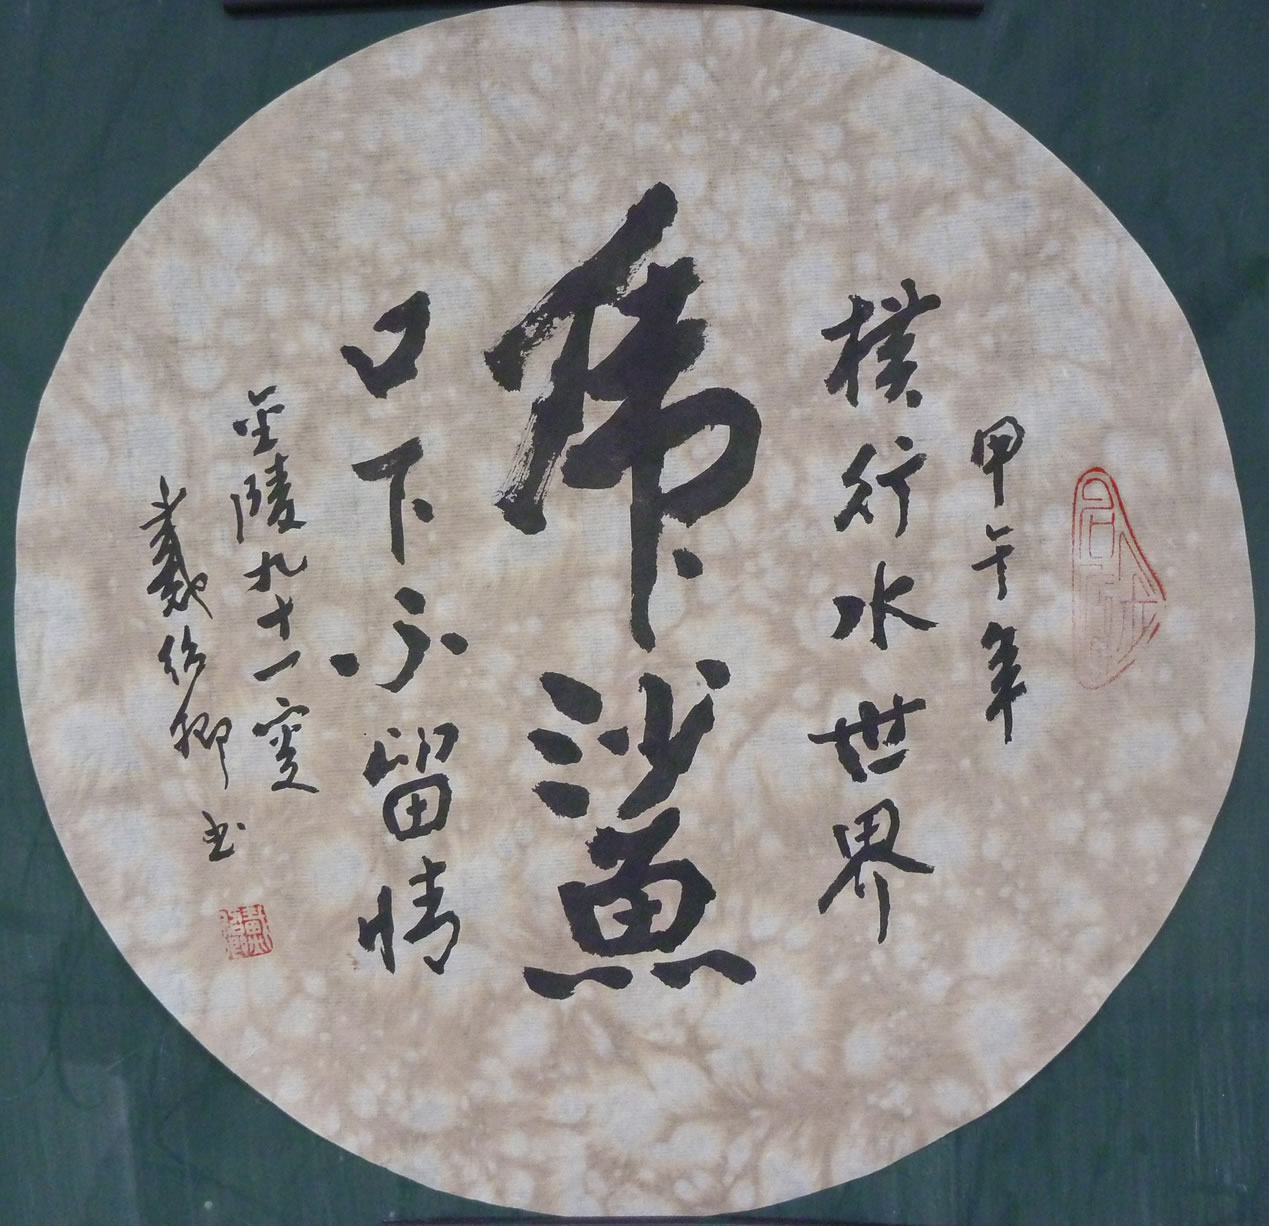 甲午年
横行水世界
虎鯊
口下不留情
金陵九十一叟
卿书